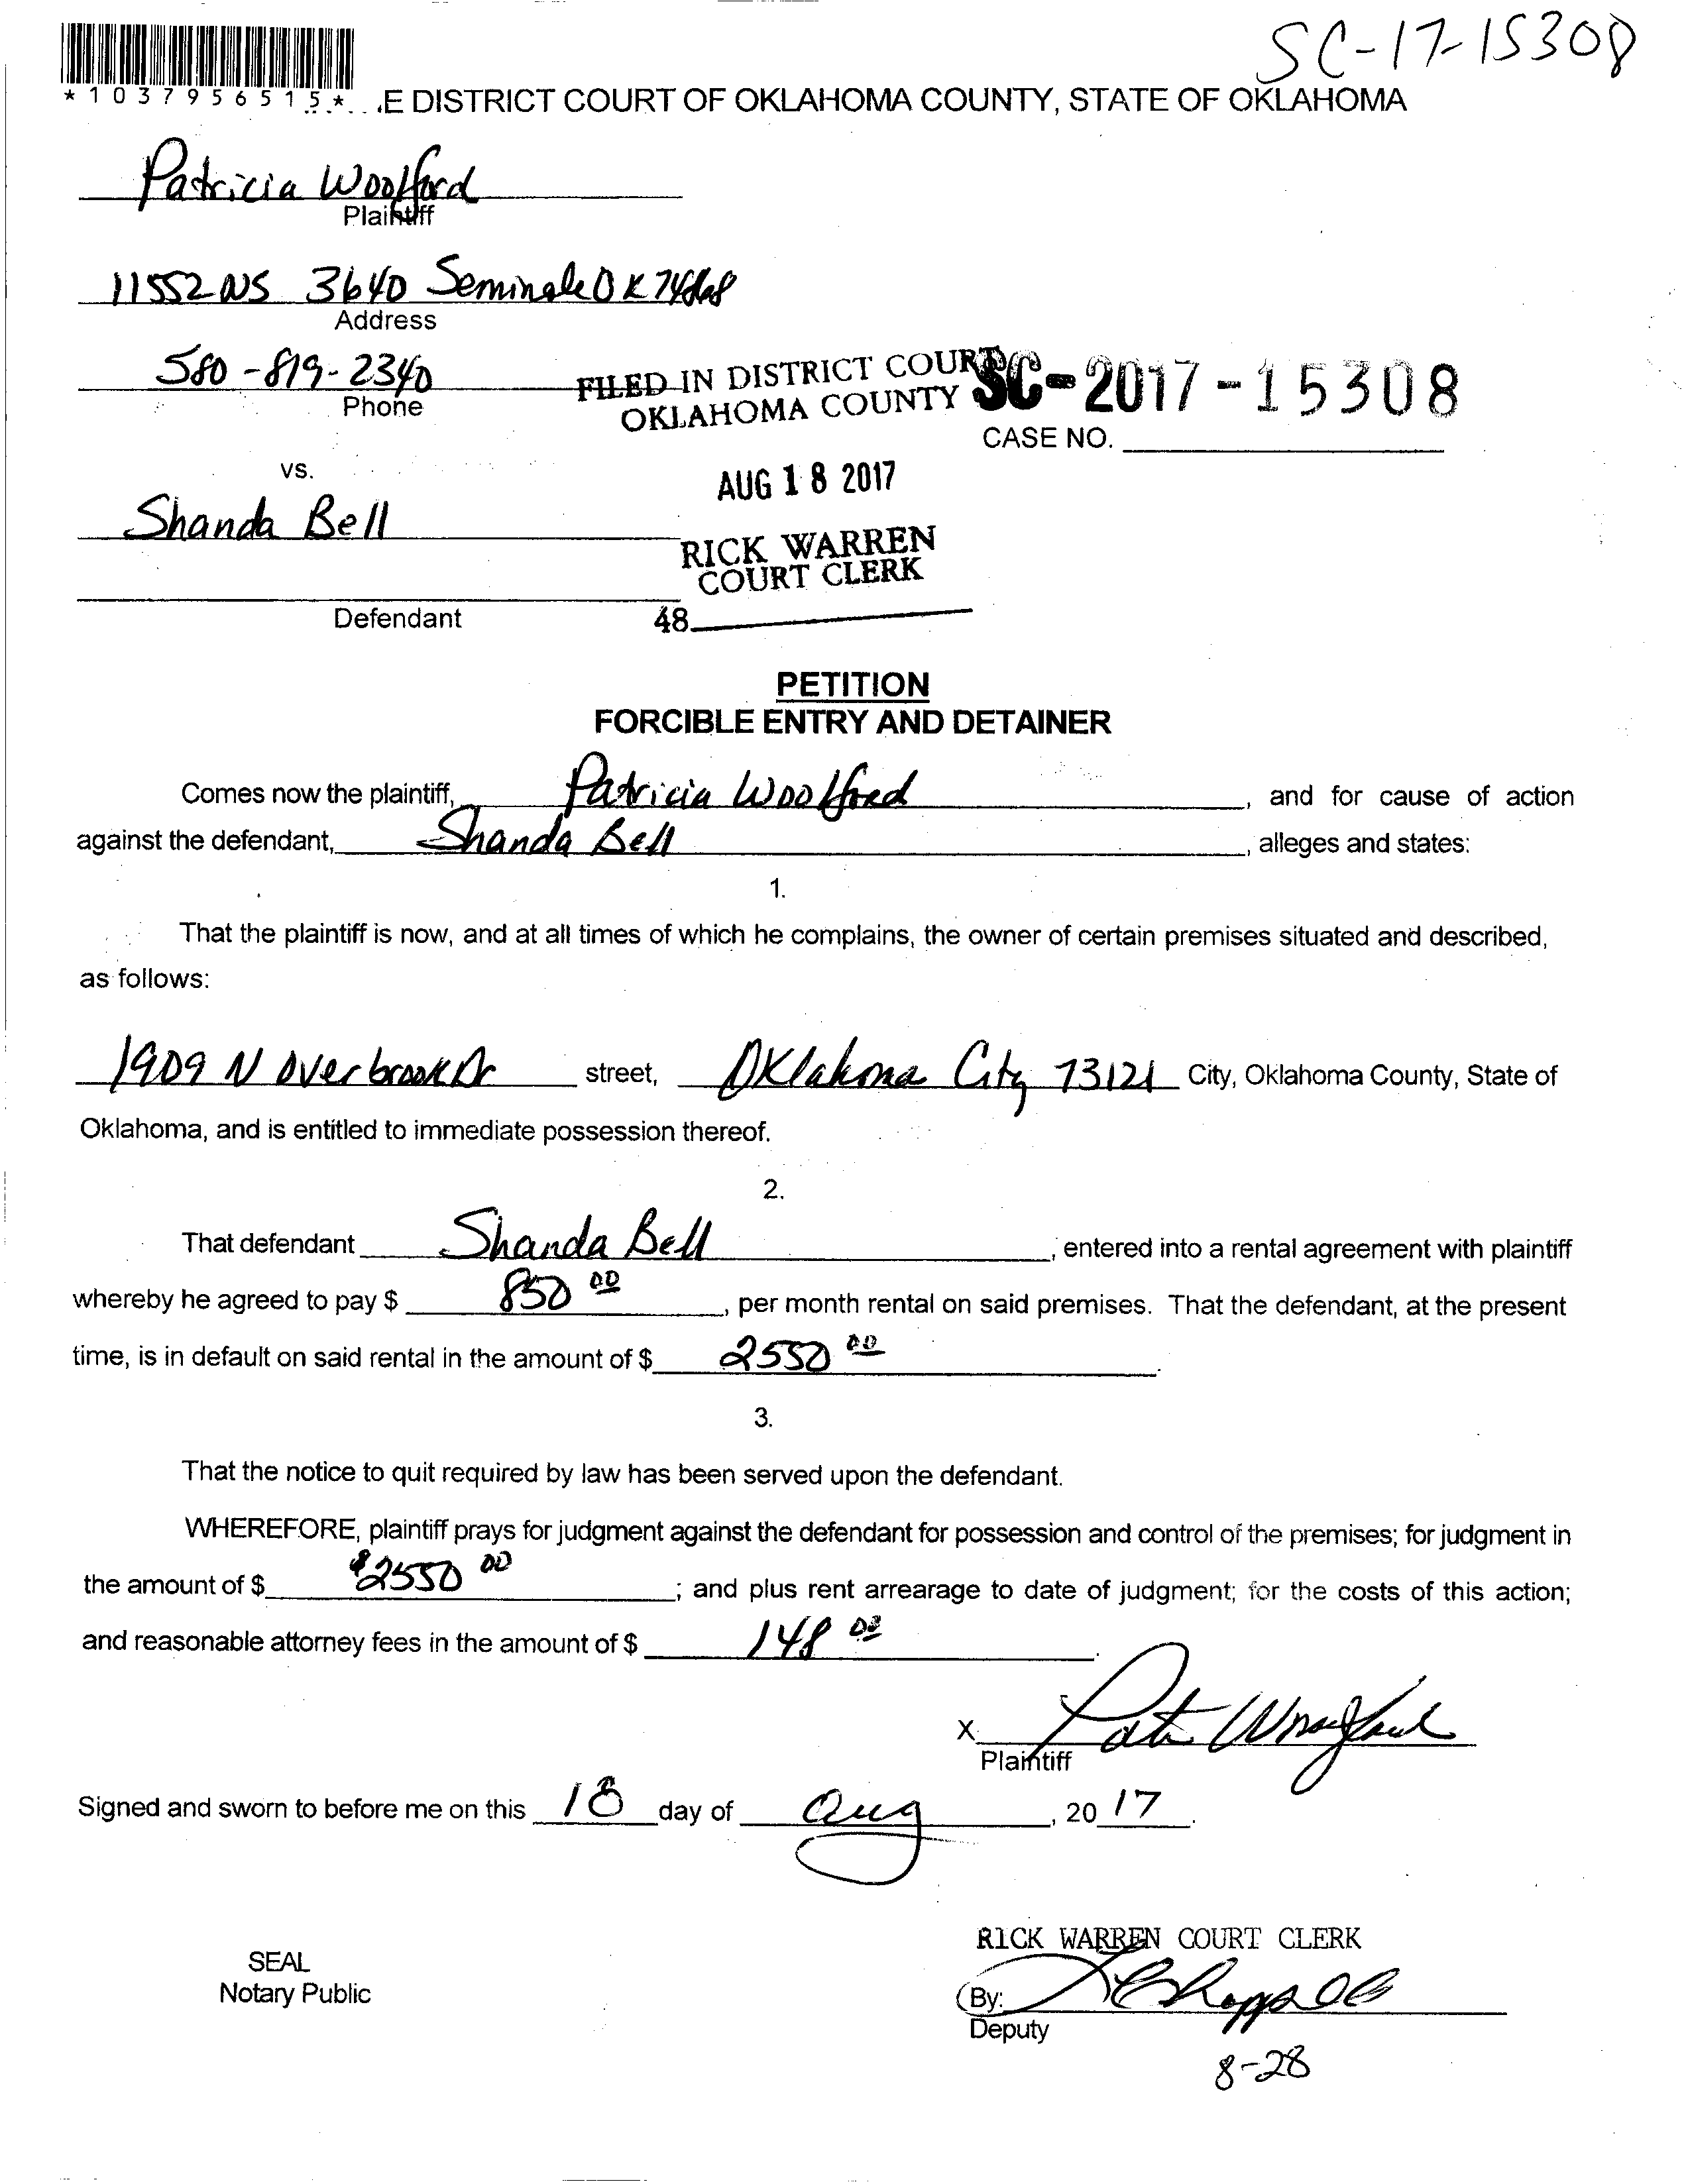 SC-17-15308
*1037956515* .E DISTRICT COURT OF OKLAHOMA COUNTY, STATE OF OKLAHOMA
Patricia Woolford
Plaintiff
11552 NS 3640 Seminole OK
Address
580-819-2340
Phone
FILED IN DISTRICT COURT
OKLAHOMA COUNTY
SC-2017-15308
CASE NO.
vs.
AUG 18 2017
Shanda Bell
RICK WARREN
COURT CLERK
Defendant
48
PETITION
FORCIBLE ENTRY AND DETAINER
Comes now the plaintiff, Patricia Woolford, and for cause of action
against the defendant, Shanda Bell, alleges and states:
1.
That the plaintiff is now, and at all times of which he complains, the owner of certain premises situated and described,
as follows:
1909 N Overbrook Dr street, Oklahoma City 73121 City, Oklahoma County, State of
Oklahoma, and is entitled to immediate possession thereof.
2.
That defendant Shanda Bell, entered into a rental agreement with plaintiff
whereby he agreed to pay $ 850 00, per month rental on said premises. That the defendant, at the present
time, is in default on said rental in the amount of $ 2550 00.
3.
That the notice to quit required by law has been served upon the defendant.
WHEREFORE, plaintiff prays for judgment against the defendant for possession and control of the premises; for judgment in
the amount of $ $2550 00; and plus rent arrearage to date of judgment; for the costs of this action;
and reasonable attorney fees in the amount of $ 148 00.
X Pat Woolford
Plaintiff
Signed and sworn to before me on this 18 day of Aug, 20 17.
RICK WARREN COURT CLERK
SEAL
Notary Public
By:
Deputy
8-28